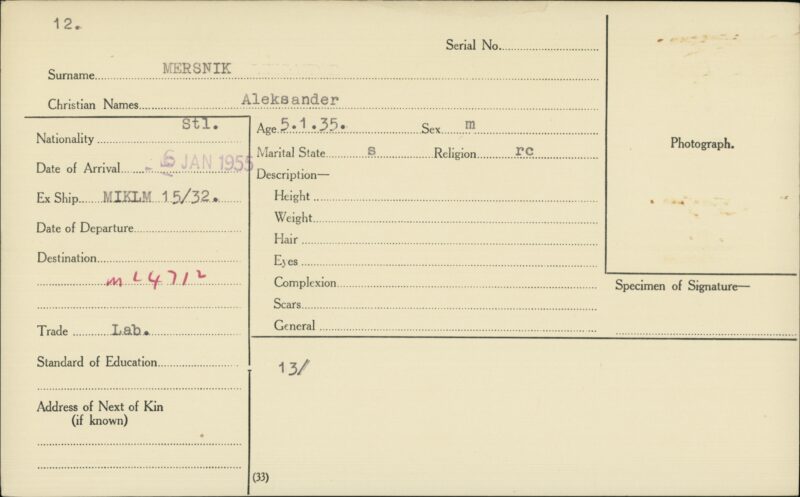 12.
Serial No.
Surname MERSNIK
Christian Names Aleksander
Nationality Stl.
Date of Arrival - 6 JAN 1955
Ex Ship MIKLM 15/32.
Date of Departure
Destination
Trade Lab.
Standard of Education
Address of Next of Kin
(if known)
Age 5.1.35. Sex m
Marital State s Religion rc
Description—
Height
Weight
Hair
Eyes
Complexion
Scars
General
13/
(33)
Photograph.
Specimen of Signature—